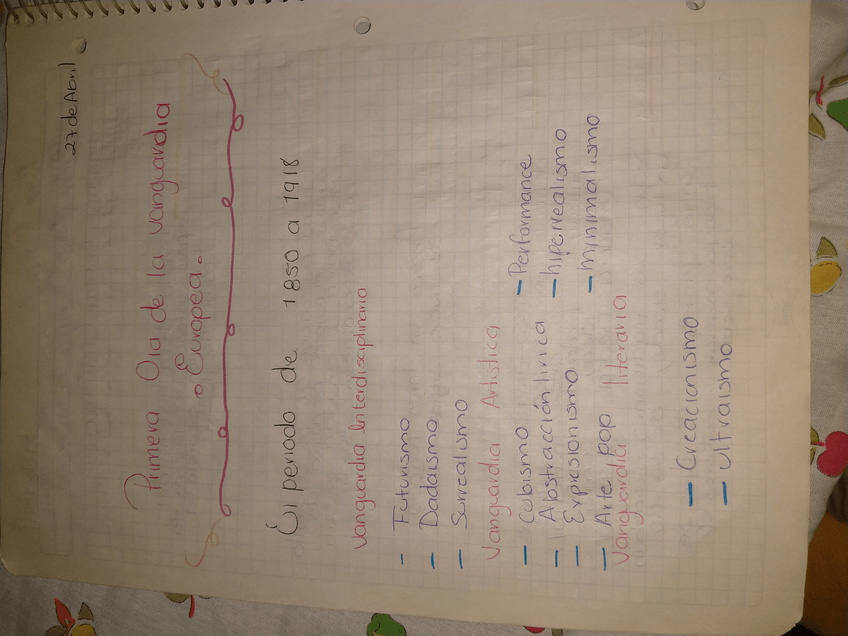 27 de Abril
Primera Ola de la Vanguardia
Europea.
periodo de 1850 a 1918
Vanguardia Interdisciplinaria
- Futurismo
- Dadaismo
- Surrealismo
Vanguardia Artística
- Cubismo - Performance
- Abstracción lirica - hiperrealismo
- Expresionismo - minimalismo
- Arte pop
Vanguardia literaria
- Creacionismo
- ultraismo